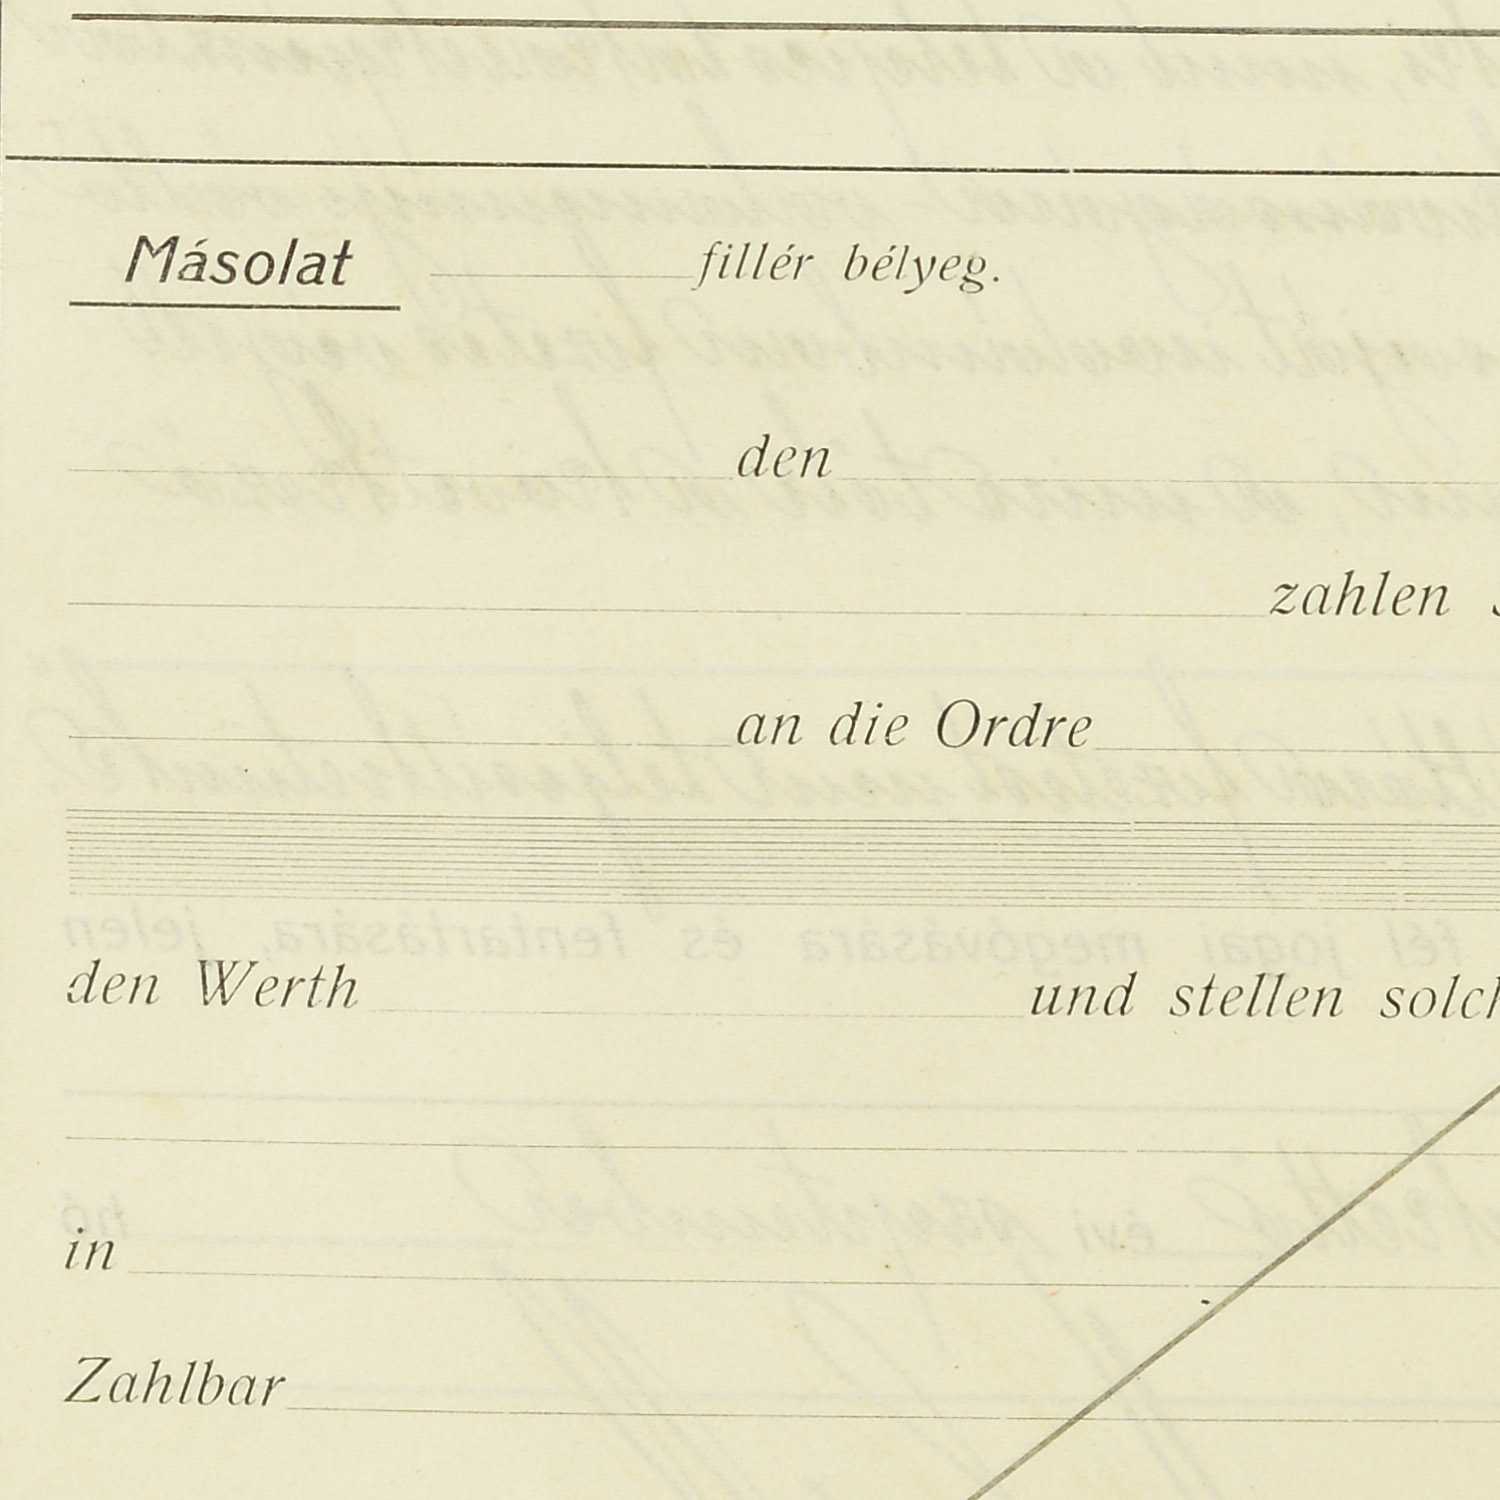 Másolat fillér bélyeg.
den
zahlen
an die Ordre
den Werth und stellen solch
in
Zahlbar